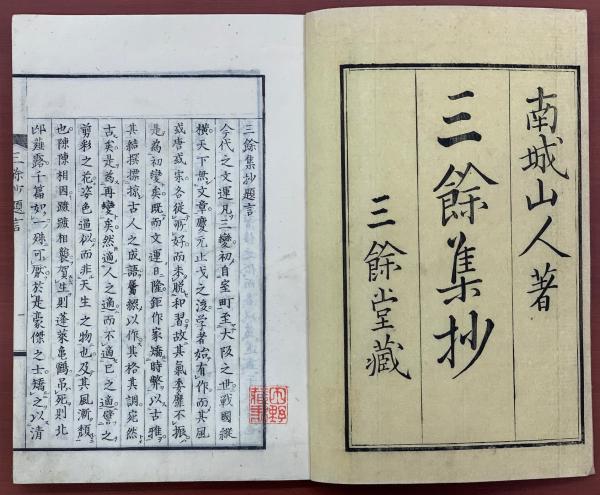 南城山人著
三餘集抄
三餘堂藏
三餘集抄題言
今代之文運凡三變初自室町至大阪之世戰國縱
橫天下無文章慶元止戈之後学者始有作而其風
或唐或宋各從所好而未脱和習故其氣委靡不振
是為初變矣既而文運日隆鉅作家矯時弊以古雅
其結撰摽掠古人之成語以作其格其調宛然
古矣是為再變矣然適人之適而不適已之適譬之
剪彩之花姿色逼似而非天生之物也及其風漸頽
也陳陳相因踈踈相襲賀生則蓬莱亀鶴吊死則北
邙薤露千篇如一殊可厭於是豪傑之士矯之以清
三餘抄題言